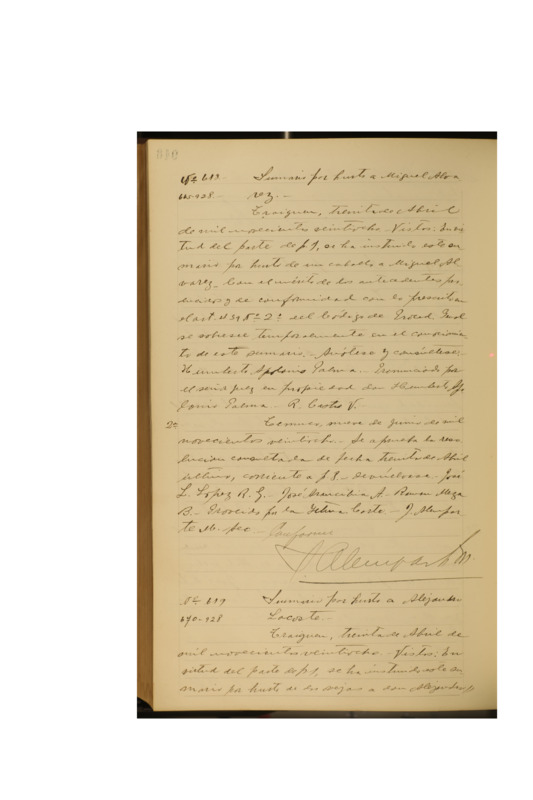 Nº 613. Sumario por hurto a Miguel Alva
rez.-
Traiguen, treinta de Abril
de mil novecientos veintiocho. Vistos: En vir
tud del parte de f 1, se ha instruido este su
mario por hurto de un caballo a Miguel Al
varez. Con el mérito de los antecedentes pro
ducidos y de conformidad con lo prescrito en
el art. 439 Nº 2º del Código de Proced. Penal
se sobresee temporalmente en el conocimien
to de este sumario.- Anótese y consúltese.-
Humberto Apolonio Palma.- Pronunciado por
el señor juez en propiedad don Humberto Apo
lonio Palma.- R. Castro V.
2º Temuco, nueve de Junio de mil
novecientos veintiocho.- Se aprueba la reso
lución consultada de fecha treinta de Abril
último, corriente a f 9.- Devuélvase. José
L. López R. G.- José A.- Roman Meza
B.- Proveído por la Iltma Corte.- J. Alempar
te M. Sec.- Conforme
J. Alemparte M.
Nº 619 Sumario por hurto a Alejandro
Lacoste.-
Traiguen, treinta de Abril de
mil novecientos veintiocho. Vistos: En
virtud del parte de f 1, se ha instruido este su
mario por hurto de a don Alejandro